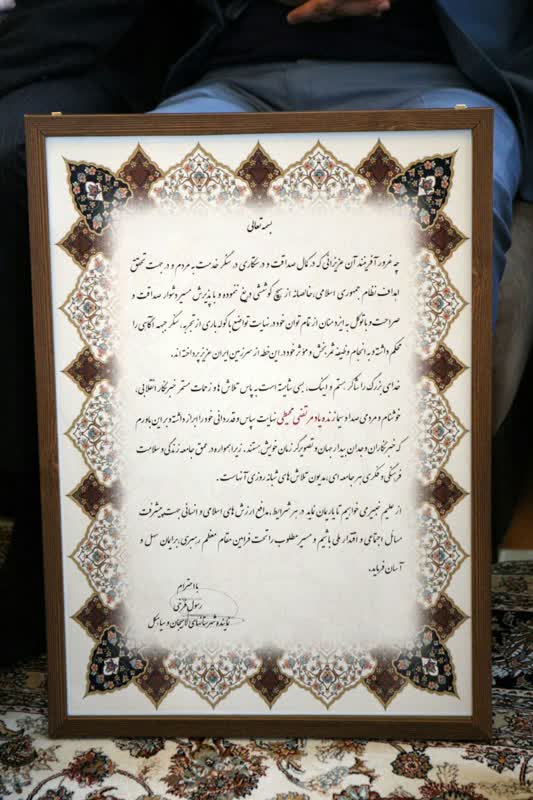 بسمه تعالی
چه غرور آفرینند آن عزیزانی که در کمال صداقت و درستکاری در سنگر خدمت به مردم و در جهت تحقق
اهداف نظام جمهوری اسلامی، خالصانه از هیچ کوششی دریغ ننموده و با پذیرش مسیر دشوار صداقت و
صراحت و با توکل به ایزد منان از تمام توان خود در نهایت تواضع با کوله باری از تجربه، سنگر جبهه آگاهی را
محکم داشته و به انجام وظیفه ثمربخش و مؤثر خود در این خطه از سرزمین ایران عزیز پرداخته اند.
خدای بزرگ را شاکر هستم و اینک، بسی شایسته است به پاس تلاش ها و زحمات مستمر خبرنگار انقلابی،
خوشنام و مردمی صدا و سیما زنده یاد مرتضی محیطی نهایت سپاس و قدردانی خود را ابراز داشته و بر این باورم
که خبرنگاران وجدان بیدار جهان و تصویرگر زمان خویش هستند. زیرا همواره در عمق جامعه زندگی و سلامت
فرهنگی و فکری هر جامعه ای، مدیون تلاش های شبانه روزی آنهاست.
از علیم خبیر می خواهیم تا یاریمان نماید در هر شرایط، مدافع ارزش های اسلامی و انسانی جهت پیشرفت
مسائل اجتماعی و اقتدار ملی باشیم و مسیر مطلوب را تحت فرامین مقام معظم رهبری، برایمان سهل و
آسان فرماید.
با احترام
رسول فرخی
نماینده شهرستانهای لاهیجان و سیاهکل